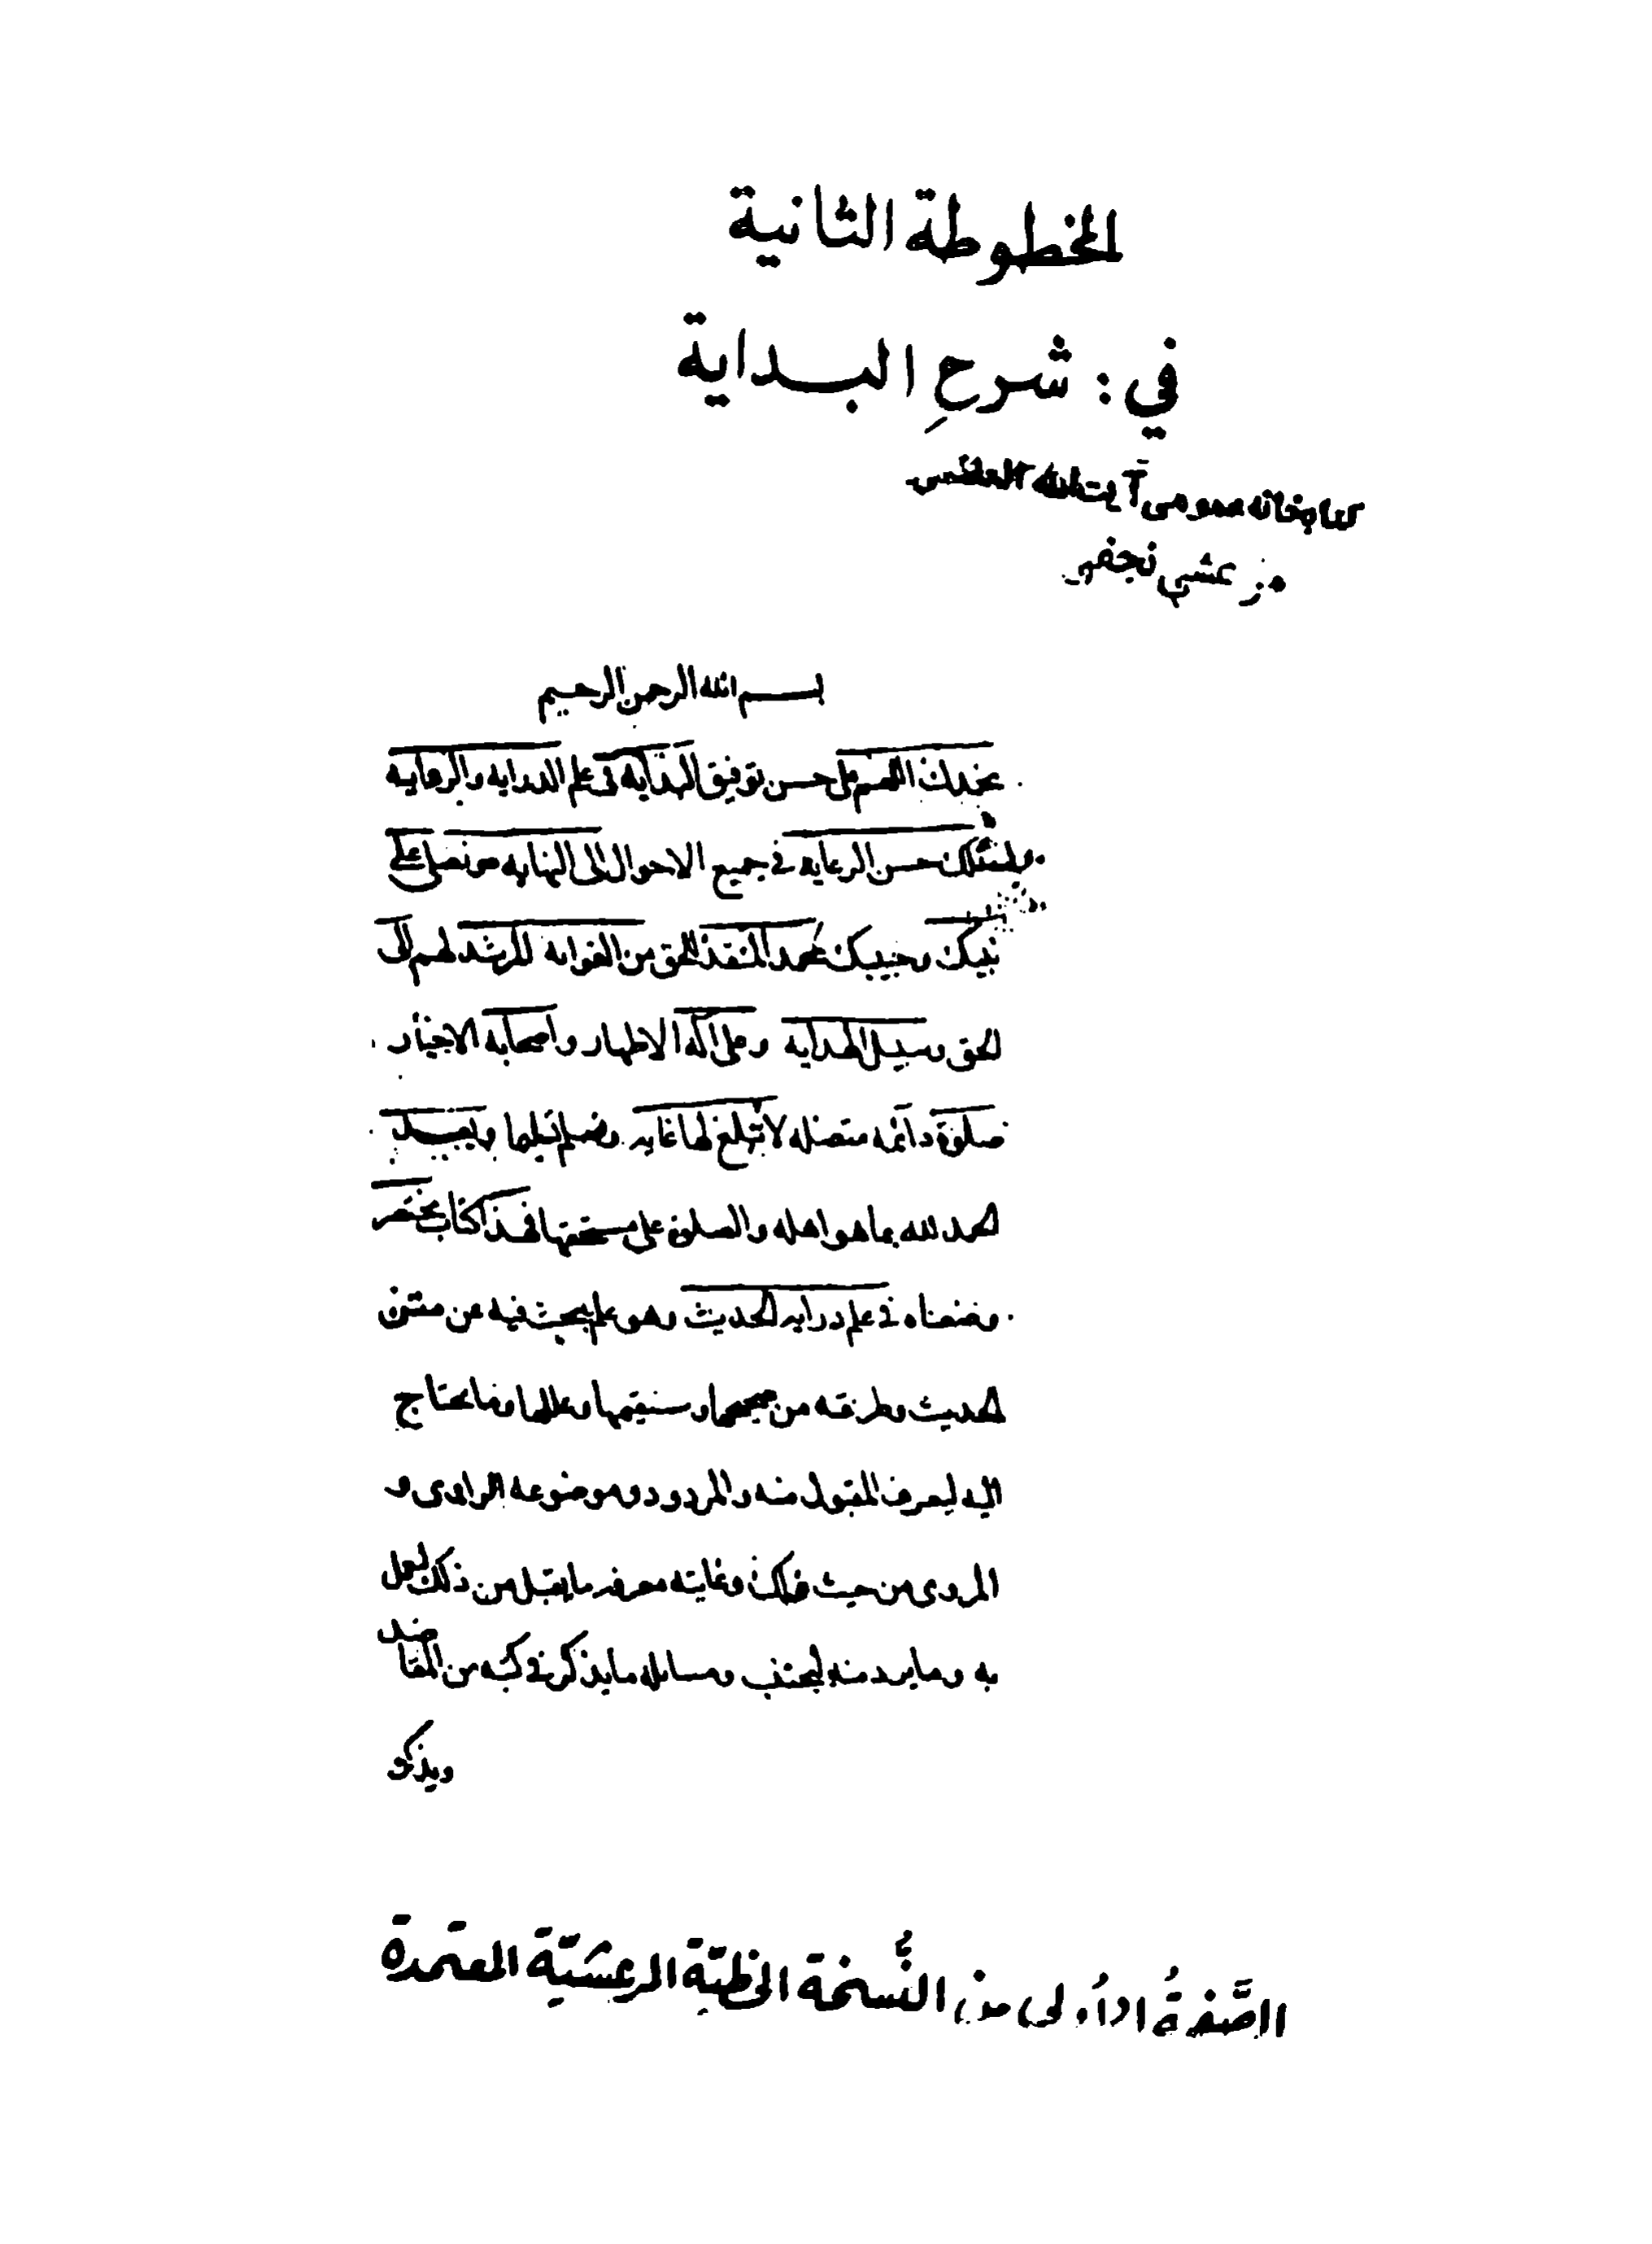 المخطوطة الثانية
في : شرحِ البداية
كتابخانه عمومى آيت الله العظمى
مرعشى نجفى
بسم الله الرحمن الرحيم
نحمدك اللهم على حسن توفيق البداية فى علم الدرايه والرعايه
ونسئلك حسن الرعايه فى جميع الاحوال الى النهايه ونصلى على
نبيك وحبيبك محمد المنقذ للخلق من الغوايه المرشد لهم الى
الحق وسبيل الهدايه وعلى اله الاطهار واصحابه الاخيار
صلوة دائمه متصله لا تبلغ لها غايه وبعد
الحمد لله بما هو اهله والصلوة على مستحقها فهذا كتاب مختصر
وضعناه فى علم دراية الحديث وهو علم يبحث فيه عن متن
الحديث وطرقه من صحيحها وسقيمها وعللها وما يحتاج
اليه ليعرف المقبول منه والمردود وموضوعه الراوى و
المروى من حيث ذلك وغايته معرفة ما يقبل من ذلك ليعمل
به وما يرد منه ليجتنب ومسائله ما يذكر فى كتبه من المقاصد
ويذكر
الصَّفحةُ الأُولى من النُّسخة الخطيّة المرعشيّة المعتمدة